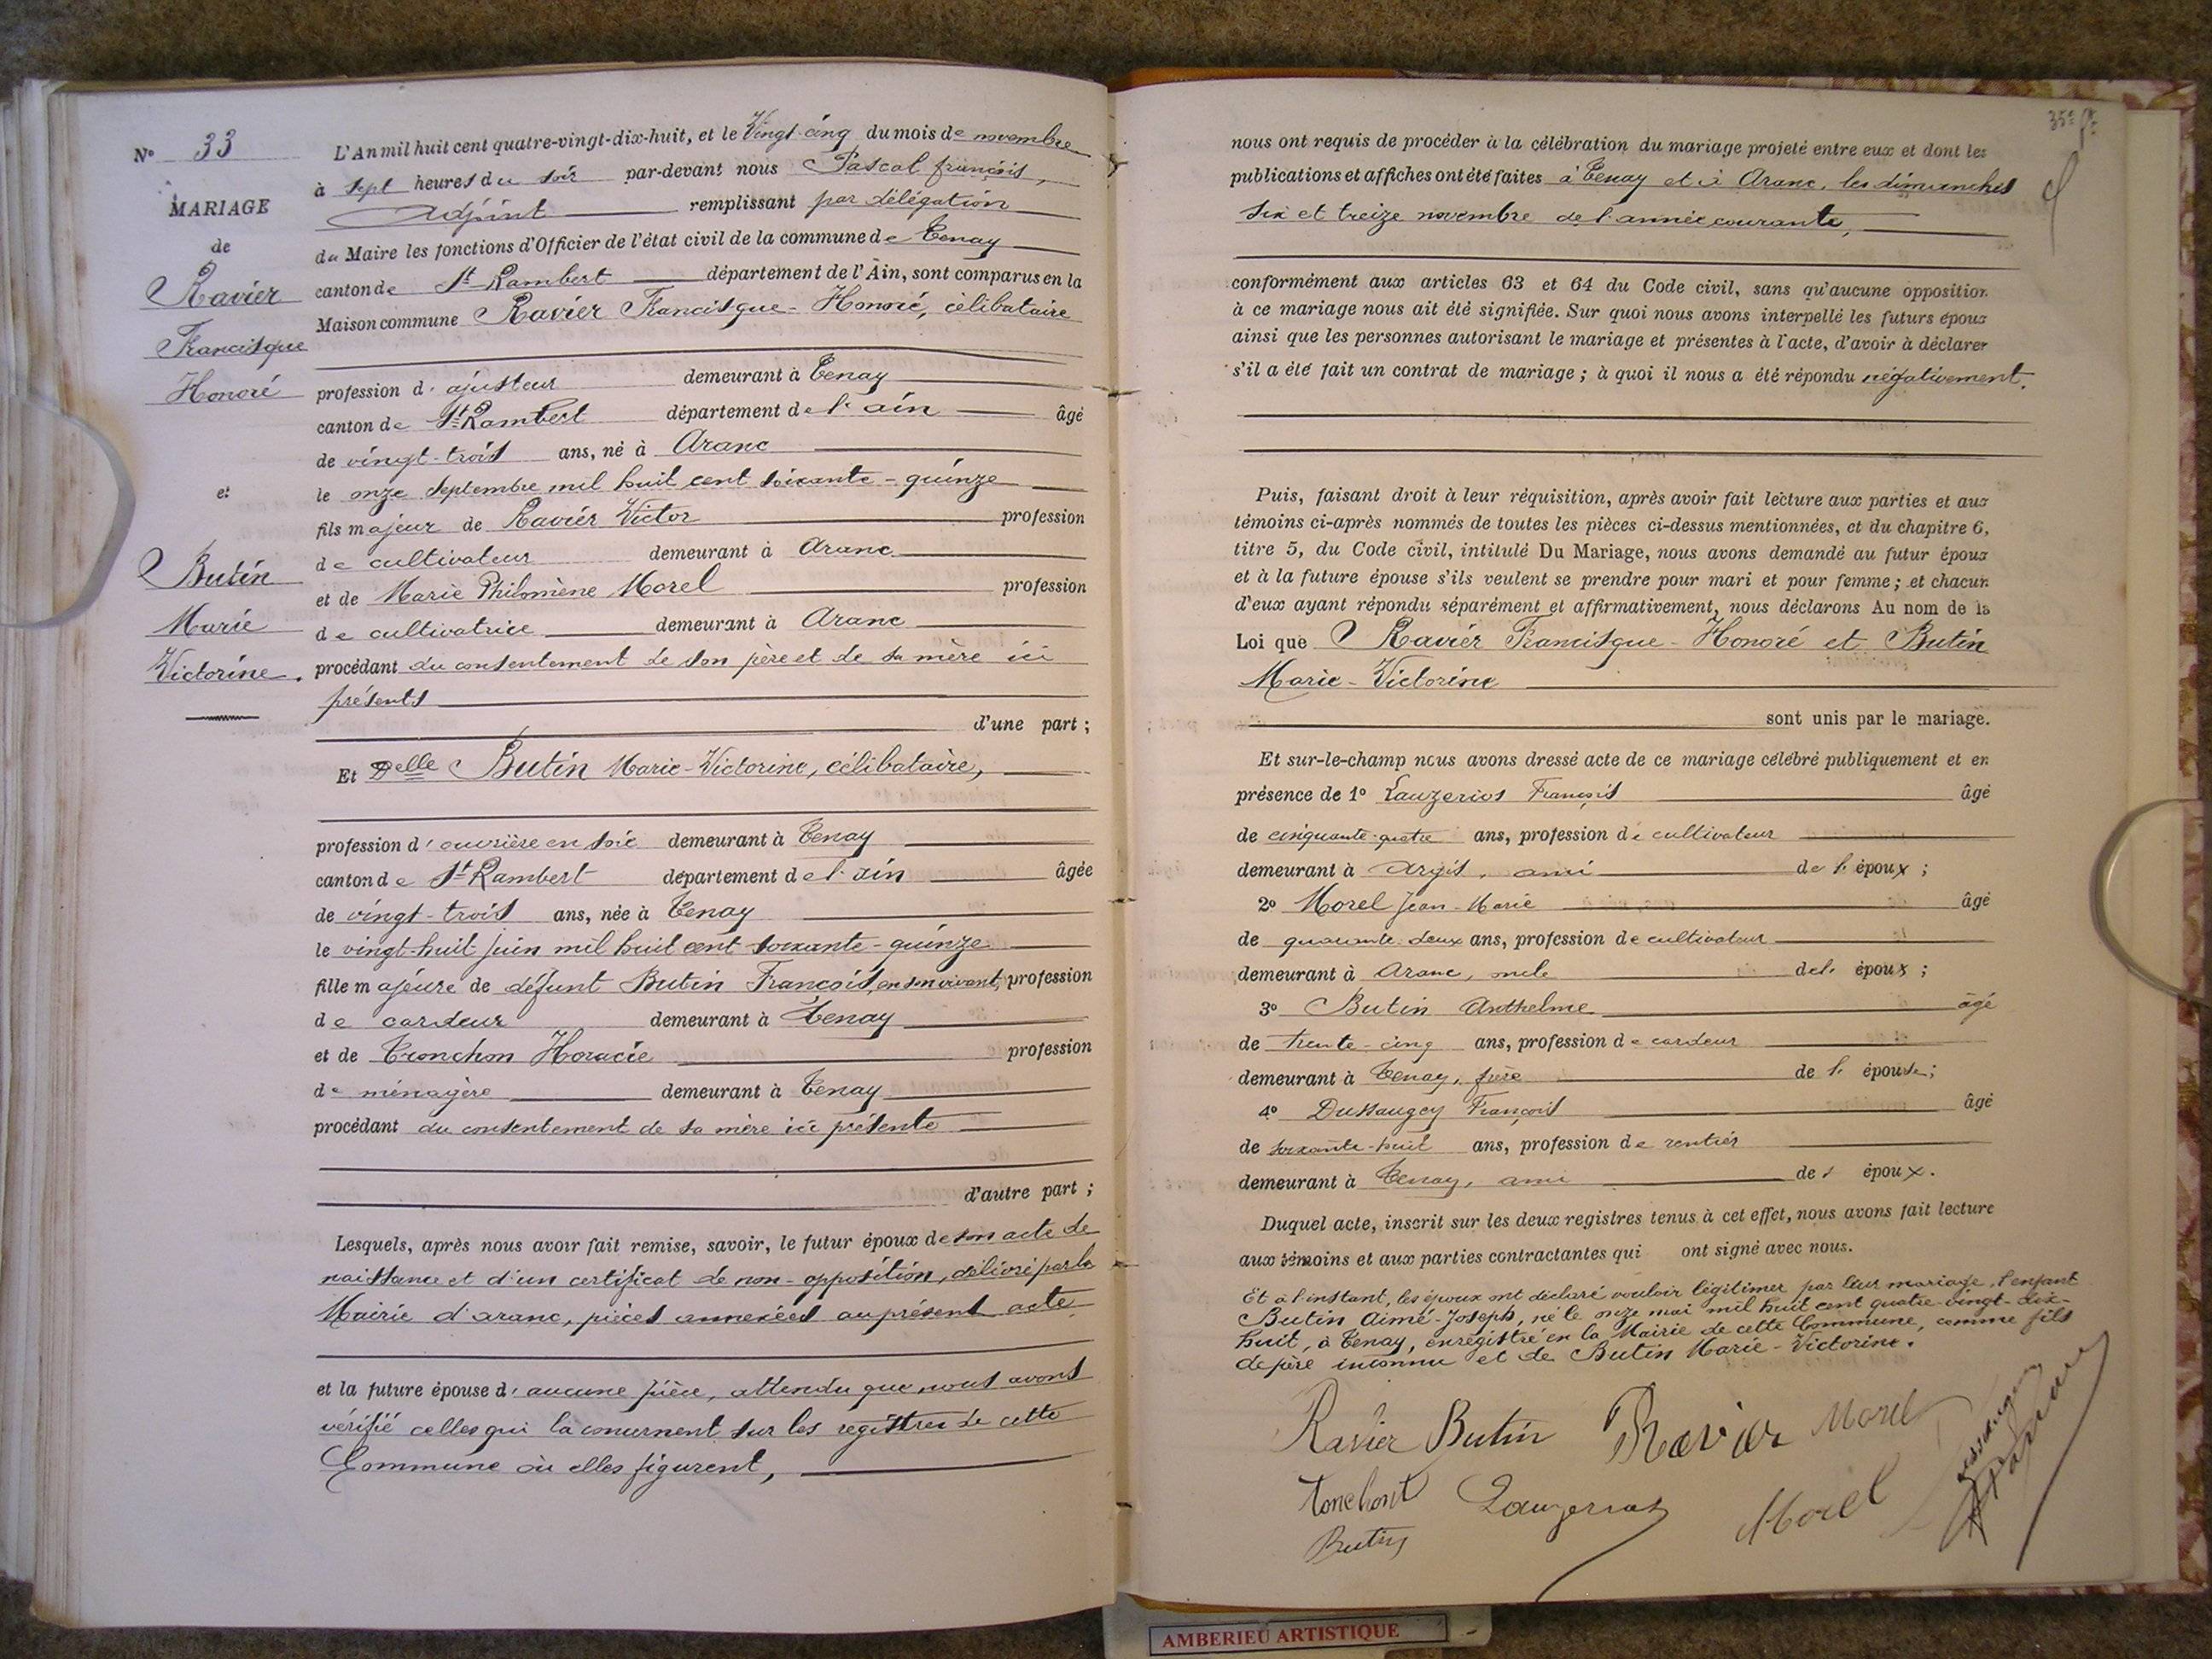 N° 33
MARIAGE
de
Ravier
Francisque
Honoré
et
Butin
Marie
Victorine.
L'An mil huit cent quatre-vingt-dix-huit, et le Vingt-cinq du mois de novembre
à sept heures du soir par-devant nous Pascal françois,
Adjoint remplissant par délégation
du Maire les fonctions d'Officier de l'état civil de la commune de Tenay
canton de St Rambert département de l'Ain, sont comparus en la
Maison commune Ravier Francisque-Honoré, célibataire
profession d'ajusteur demeurant à Tenay
canton de St Rambert département de l'ain âgé
de vingt-trois ans, né à Aranc
le onze septembre mil huit cent soixante-quinze
fils majeur de Ravier Victor profession
de cultivateur demeurant à Aranc
et de Marie Philomène Morel profession
de cultivatrice demeurant à Aranc
procédant du consentement de son père et de sa mère ici
présents
d'une part ;
Et Delle Butin Marie-Victorine, célibataire,
profession d'ouvrière en soie demeurant à Tenay
canton de St Rambert département de l'ain âgée
de vingt-trois ans, née à Tenay
le vingt-huit juin mil huit cent soixante-quinze
fille majeure de défunt Butin François, en son vivant, profession
de cardeur demeurant à Tenay
et de Tronchon Horacie profession
de ménagère demeurant à Tenay
procédant du consentement de sa mère ici présente
d'autre part ;
Lesquels, après nous avoir fait remise, savoir, le futur époux de son acte de
naissance et d'un certificat de non-opposition, délivré par la
Mairie d'aranc, pièces annexées au présent acte
et la future épouse d'aucune pièce, attendu que nous avons
vérifié celles qui la concernent sur les registres de cette
Commune où elles figurent,
nous ont requis de procéder à la célébration du mariage projeté entre eux et dont les
publications et affiches ont été faites à Tenay et à Aranc, les dimanches
six et treize novembre de l'année courante,
conformément aux articles 63 et 64 du Code civil, sans qu'aucune opposition
à ce mariage nous ait été signifiée. Sur quoi nous avons interpellé les futurs époux
ainsi que les personnes autorisant le mariage et présentes à l'acte, d'avoir à déclarer
s'il a été fait un contrat de mariage ; à quoi il nous a été répondu négativement.
Puis, faisant droit à leur réquisition, après avoir fait lecture aux parties et aux
témoins ci-après nommés de toutes les pièces ci-dessus mentionnées, et du chapitre 6,
titre 5, du Code civil, intitulé Du Mariage, nous avons demandé au futur époux
et à la future épouse s'ils veulent se prendre pour mari et pour femme ; et chacun
d'eux ayant répondu séparément et affirmativement, nous déclarons Au nom de la
Loi que Ravier Francisque-Honoré et Butin
Marie-Victorine
sont unis par le mariage.
Et sur-le-champ nous avons dressé acte de ce mariage célébré publiquement et en
présence de 1° François âgé
de cinquante-quatre ans, profession de cultivateur
demeurant à Argis, ami de l'époux ;
2° Morel Jean-Marie âgé
de quarante-deux ans, profession de cultivateur
demeurant à Aranc, oncle de l'époux ;
3° Butin Anthelme âgé
de trente-cinq ans, profession de cardeur
demeurant à Tenay, frère de l'épouse ;
4° Dussaugey François âgé
de soixante-huit ans, profession de rentier
demeurant à Tenay, ami des époux.
Duquel acte, inscrit sur les deux registres tenus à cet effet, nous avons fait lecture
aux témoins et aux parties contractantes qui ont signé avec nous.
Et à l'instant, les époux ont déclaré vouloir légitimer par leur mariage, l'enfant
Butin Aimé-Joseph, né le onze mai mil huit cent quatre-vingt-dix-
huit, à Tenay, enregistré en la Mairie de cette Commune, comme fils
de père inconnu et de Butin Marie-Victorine.
Ravier Butin Ravier Morel
Morel
Butin
AMBERIEU ARTISTIQUE